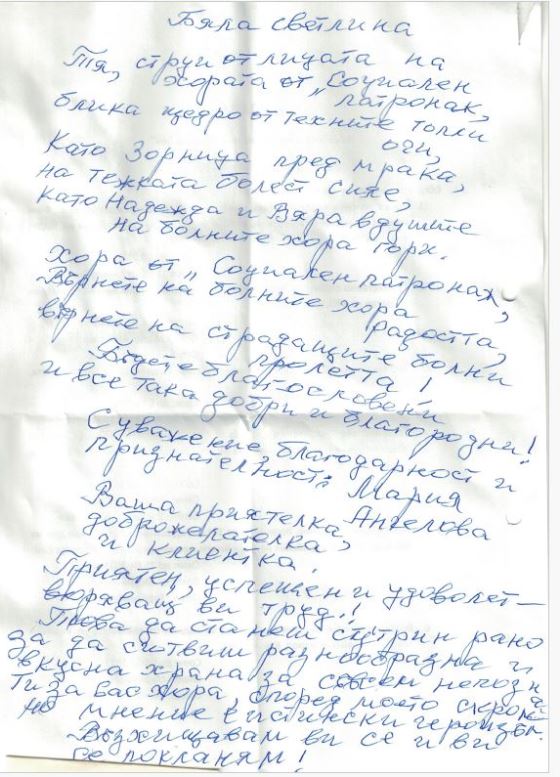 Бяла светлина
Тя, струи от лицата на
хората от „Социален
патронаж,
блика щедро от техните топли
очи,
Като Зорница пред мрака,
на тежката болест сияе,
като Надежда и Вяра в душите
на болните хора гори.
Хора от „Социален патронаж,
Върнете на болните хора
радостта,
върнете на страдащите болни
пролетта!
Бъдете благословени
и все така добри и благородни!
С уважение, благодарност и
признателност: Мария
Ангелова
Ваша приятелка,
доброжелателка,
и клиентка.
Приятен, успешен и удовлет–
воряващ ви труд!
Това да станеш сутрин рано
за да сготвиш разнообразна и
вкусна храна за съвсем непозна
ти за вас хора, според моето скром
но мнение е истински героизъм.
Възхищавам ви се и ви
се покланям!